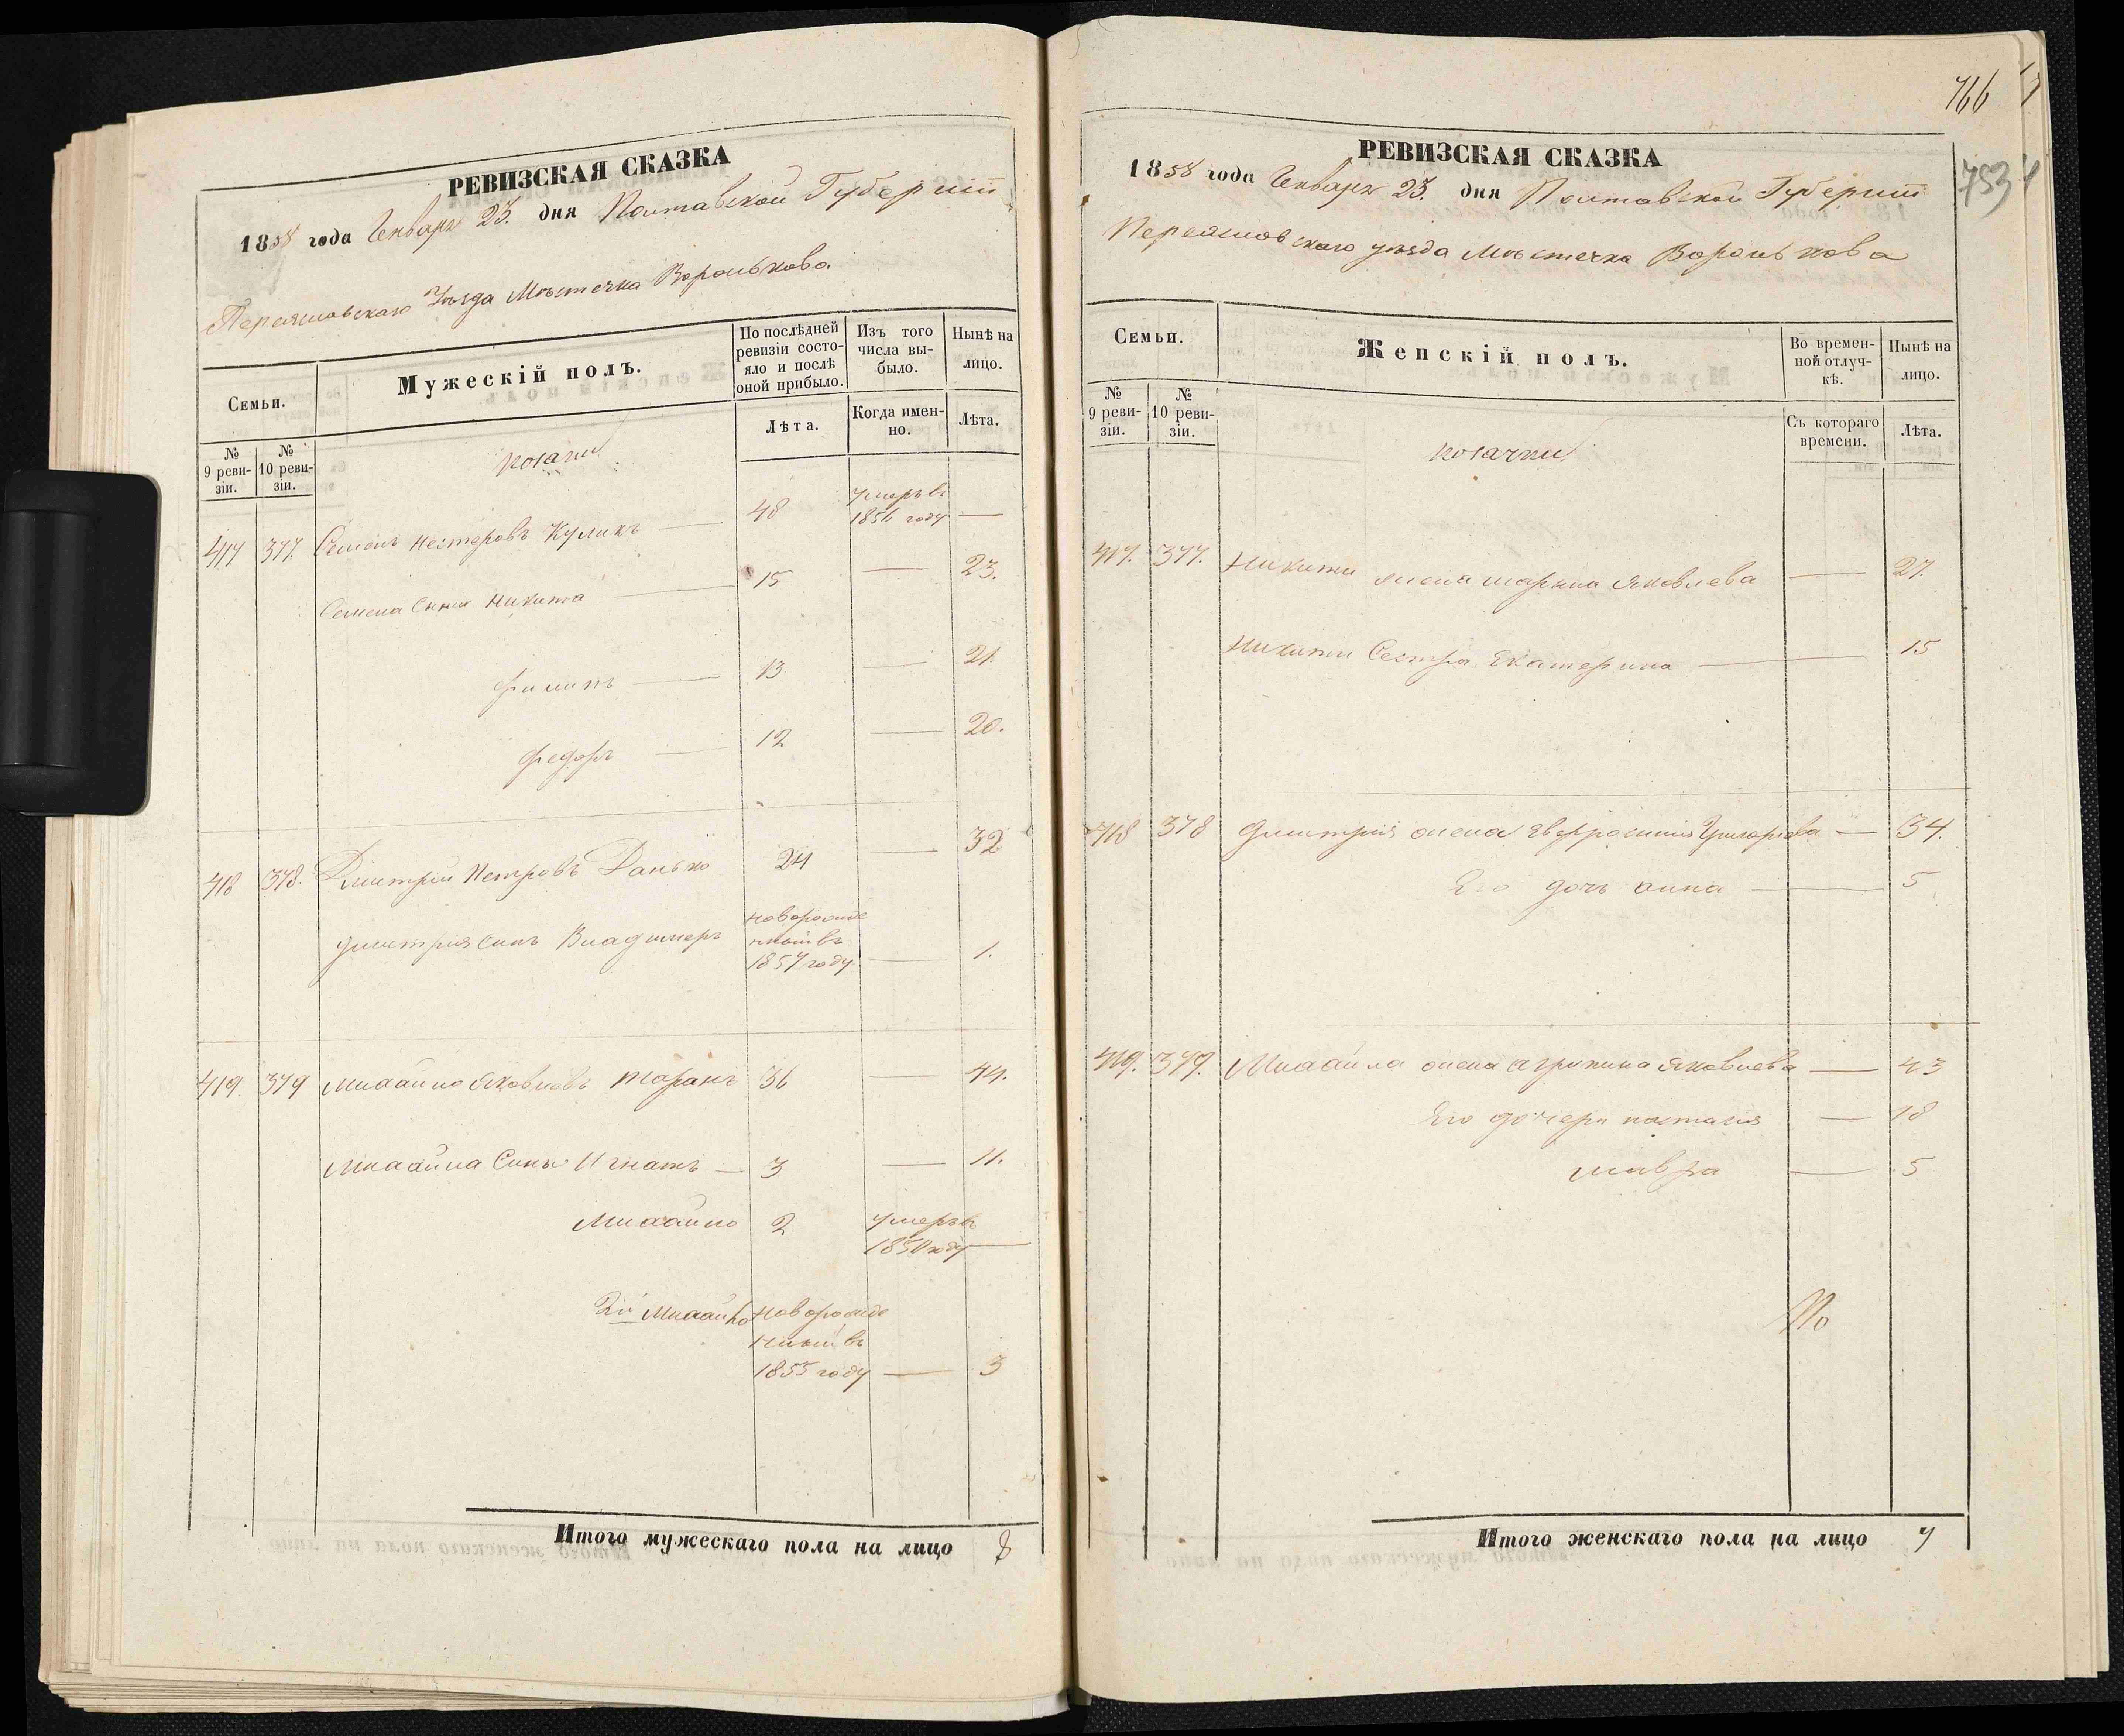 РЕВИЗСКАЯ СКАЗКА
1858 года Генваря 23. дня Полтавской Губерніи
Переяславскаго Уѣзда Мѣстечка Воронькова
Семьи.
Мужескій полъ.
По послѣдней ревизіи состояло и послѣ оной прибыло.
Изъ того числа выбыло.
Нынѣ на лицо.
№ 9 ревизіи.
№ 10 ревизіи.
Лѣта.
Когда именно.
Лѣта.
козаки
417 377. Семенъ Нестеровъ Куликъ — 48 Умеръ въ 1856 году —
Семена Сыны Никита — 15 — 23.
Филипъ — 13 — 21.
Федоръ — 12 — 20.
418 378. Дмитрій Петровъ Данько 24 — 32
Дмитрія Сынъ Владимеръ новорожденный въ 1857 году — 1.
419 379 Михайло Яковлевъ Таранъ 36 — 44.
Михайла Сыны Игнатъ — 3 — 11.
Михайло 2 умеръ въ 1850 году —
2й Михайло Новорожденный въ 1855 году — 3
Итого мужескаго пола на лицо 8
766
753
РЕВИЗСКАЯ СКАЗКА
1858 года Генваря 23. дня Полтавской Губерніи
Переяславскаго уѣзда Мѣстечка Воронькова
Семьи.
Женскій полъ.
Во временной отлучкѣ.
Нынѣ на лицо.
№ 9 ревизіи.
№ 10 ревизіи.
Съ котораго времени.
Лѣта.
козачки
417. 377. Никиты жена Марина Яковлева — 27.
Никиты Сестра Екатерина — 15
418 378 Дмитрія жена Евфросинія Григорьева — 34.
Его дочь анна — 5
419. 379. Михайла жена Агрипина Яковлева — 43
Его дочери настасія — 18
мавра — 5
Итого женскаго пола на лицо 7